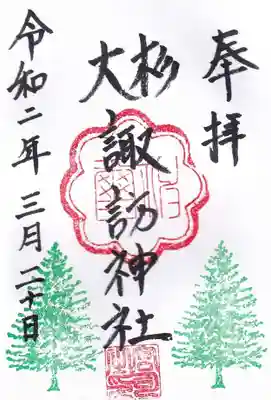 奉拝
大杉
諏訪神社
令和二年三月二十日